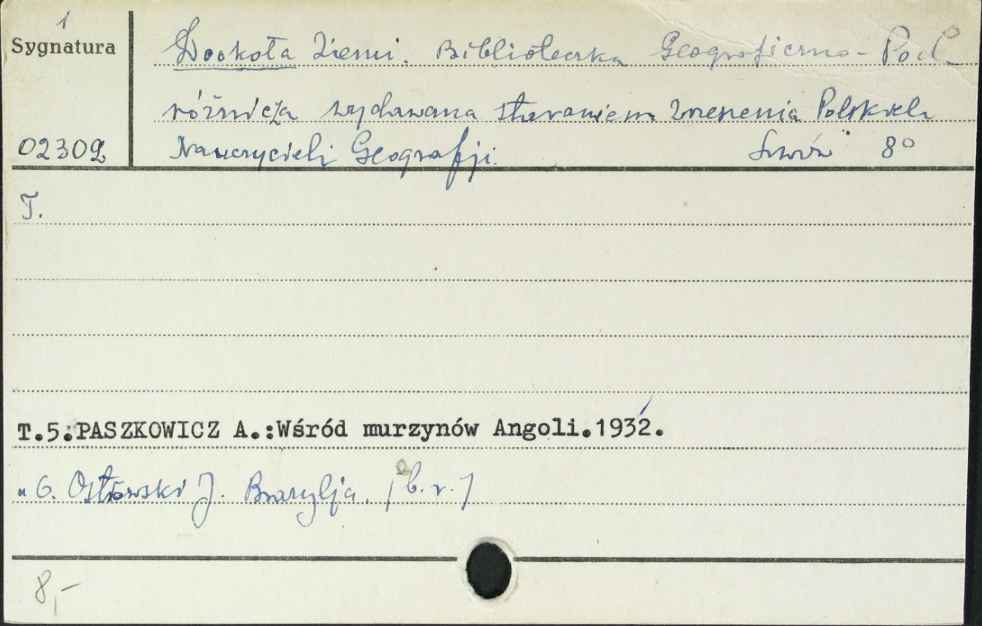 1
Sygnatura
Dookoła Ziemi. Biblioteczka Geograficzno-Pod-
różnicza wydawana staraniem Zrzeszenia Polskich
02302
Nauczycieli Geografji. Lwów 8°
T.
T.5.:PASZKOWICZ A.:Wśród murzynów Angoli.1932.
" 6. Ostrowski J. Brazylja. [b.r.]
8,-